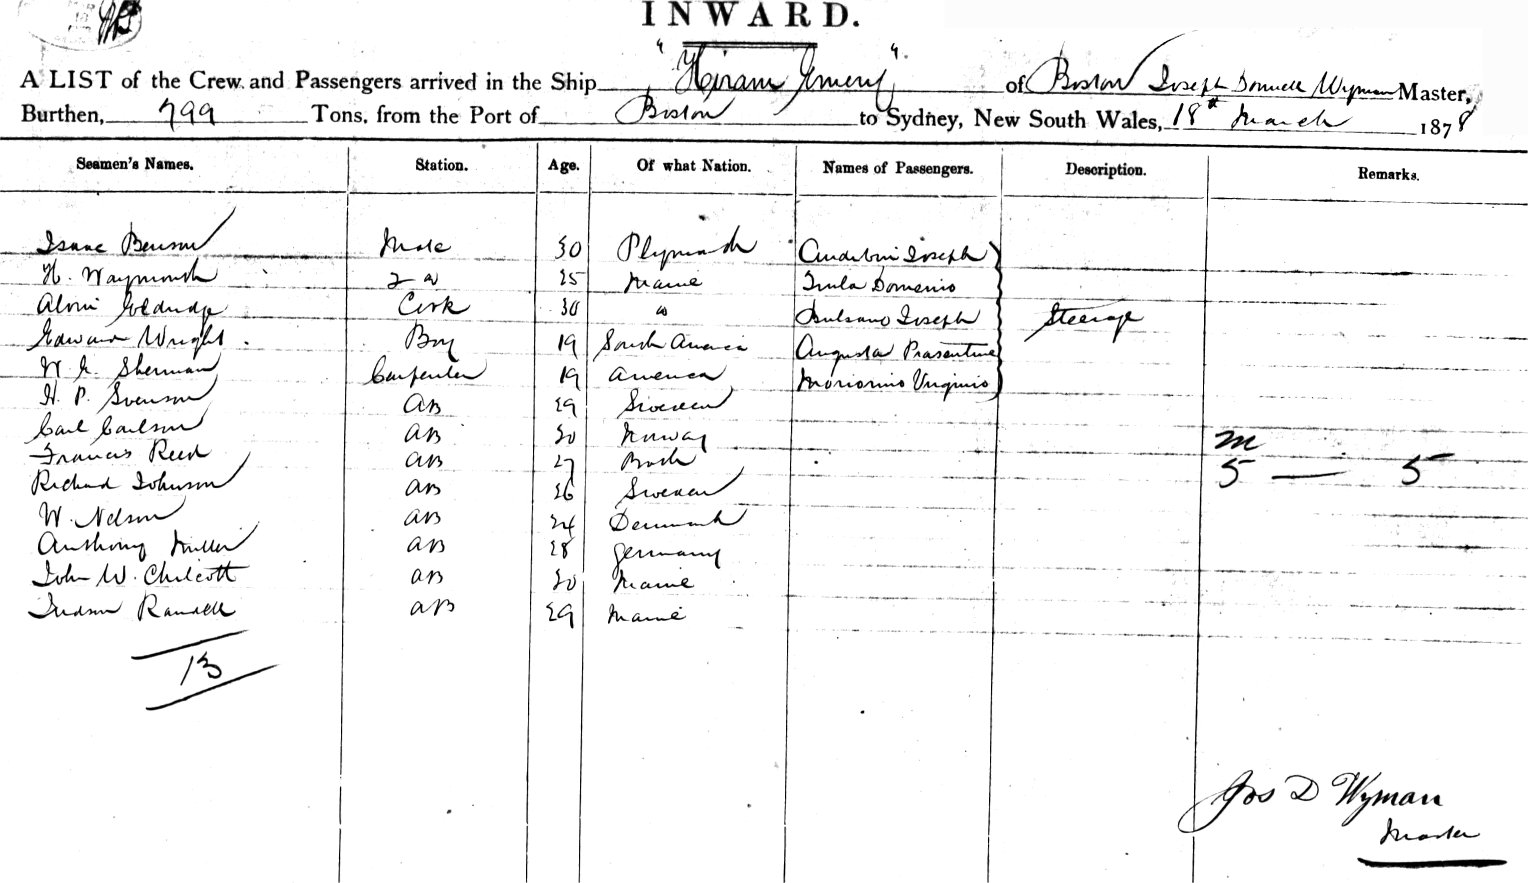 INWARD.
A LIST of the Crew and Passengers arrived in the Ship "Hiram Emery" of Boston Joseph Donnell Wyman Master,
Burthen, 799 Tons, from the Port of Boston to Sydney, New South Wales, 18th March 1878
Seamen's Names. Station. Age. Of what Nation. Names of Passengers. Description. Remarks.
Isaac Benson Mate 30 Plymouth Joseph
H. Waymouth 2 25 Maine Domenio
Cook 30 Joseph Steerage
Edward Wright Boy 19 South America Augusta
W. Sherman Carpenter 19 America Virginio
H. P. Svenson AB 29 Sweden
Carl Carlson AB 30 Norway M
Francis Reed AB 27 5 — 5
Richard Johnson AB 26 Sweden
W. Nelson AB 24 Denmark
Anthony Miller AB 28 Germany
John W. Chilcott AB 30 Maine
Judson Randell AB 29 Maine
13
Jos D Wyman
Master